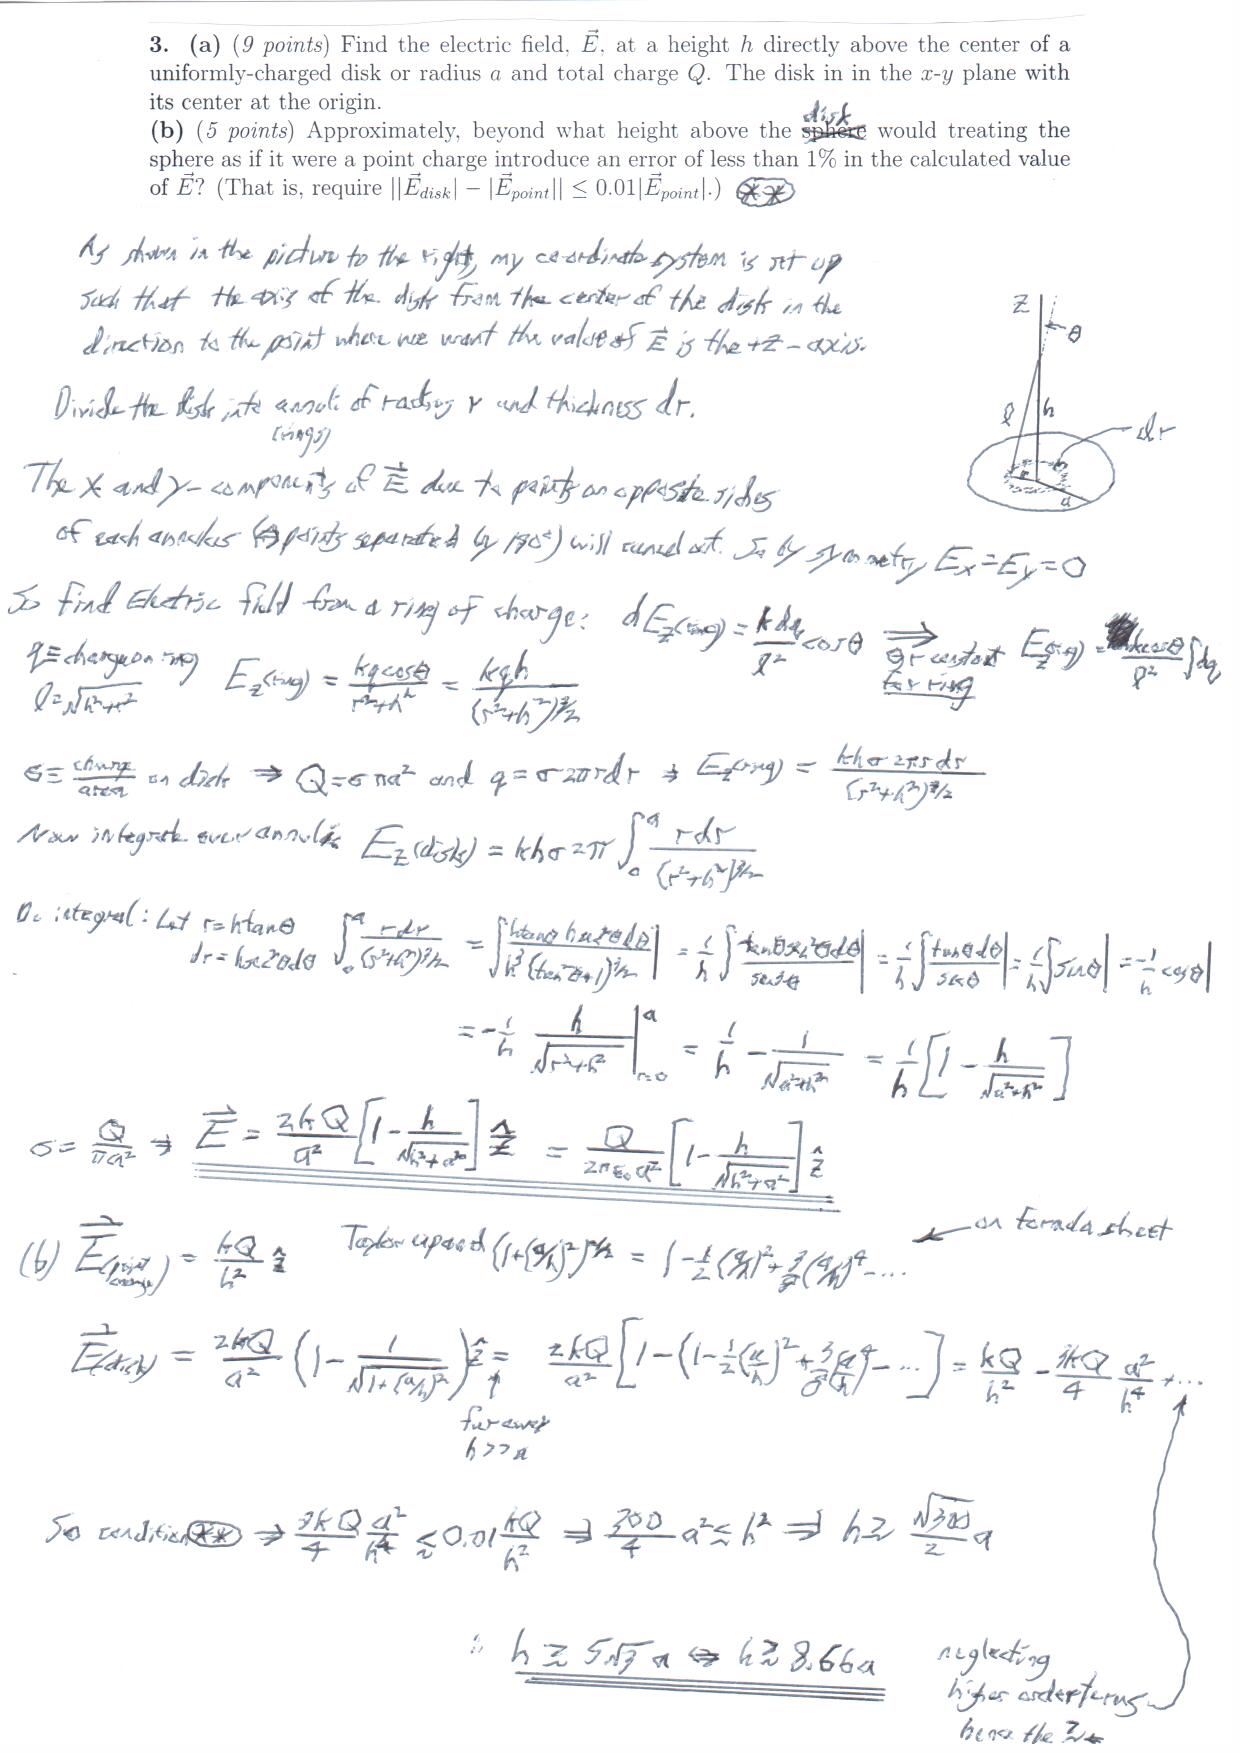 3. (a) (9 points) Find the electric field, $\vec{E}$, at a height h directly above the center of a
uniformly-charged disk or radius a and total charge Q. The disk in in the x-y plane with
its center at the origin.
disk
(b) (5 points) Approximately, beyond what height above the ~~sphere~~ would treating the
sphere as if it were a point charge introduce an error of less than 1% in the calculated value
of $\vec{E}$? (That is, require $||\vec{E}_{disk}| - |\vec{E}_{point}|| \leq 0.01|\vec{E}_{point}|$.) (**)
As shown in the picture to the right, my coordinate system is set up
such that the axis of the disk from the center of the disk in the
direction to the point where we want the value of $\vec{E}$ is the +z-axis.
z
θ
ℓ h
dr
r a
Divide the disk into annuli of radius r and thickness dr.
(rings)
The x and y-components of $\vec{E}$ due to points on opposite sides
of each annulus (points separated by 180°) will cancel out. So by symmetry $E_x = E_y = 0$
So find Electric field from a ring of charge: $dE_z(ring) = \frac{k\,dq}{\ell^2}\cos\theta$ ⟹ θ, r constant for ring $E_z(ring) = \frac{k\cos\theta}{\ell^2}\int dq$
q ≡ charge on ring $E_z(ring) = \frac{kq\cos\theta}{r^2+h^2} = \frac{kqh}{(r^2+h^2)^{3/2}}$
$\ell = \sqrt{h^2+r^2}$
$\sigma \equiv \frac{charge}{area}$ on disk ⇒ $Q = \sigma\pi a^2$ and $q = \sigma 2\pi r dr$ ⇒ $E_z(ring) = \frac{kh\sigma 2\pi r dr}{(r^2+h^2)^{3/2}}$
Now integrate over annuli: $E_z(disk) = kh\sigma 2\pi \int_0^a \frac{r dr}{(r^2+h^2)^{3/2}}$
Do integral: Let $r = h\tan\theta$ $\int_0^a \frac{r dr}{(r^2+h^2)^{3/2}} = \int \frac{h\tan\theta\, h\sec^2\theta d\theta}{h^3(\tan^2\theta+1)^{3/2}}| = \frac{1}{h}\int \frac{\tan\theta\sec^2\theta d\theta}{\sec^3\theta}| = \frac{1}{h}\int \frac{\tan\theta d\theta}{\sec\theta}| = \frac{1}{h}\int \sin\theta| = -\frac{1}{h}\cos\theta|$
$dr = h\sec^2\theta d\theta$
$= -\frac{1}{h}\frac{h}{\sqrt{r^2+h^2}}|_{r=0}^{a} = \frac{1}{h} - \frac{1}{\sqrt{a^2+h^2}} = \frac{1}{h}[1 - \frac{h}{\sqrt{a^2+h^2}}]$
$\sigma = \frac{Q}{\pi a^2}$ ⇒ $\vec{E} = \frac{2kQ}{a^2}[1 - \frac{h}{\sqrt{h^2+a^2}}]\hat{z} = \frac{Q}{2\pi\epsilon_0 a^2}[1 - \frac{h}{\sqrt{h^2+a^2}}]\hat{z}$
(b) $\vec{E}(point charge) = \frac{kQ}{h^2}\hat{z}$ Taylor expand $(1+(a/h)^2)^{-1/2} = 1 - \frac{1}{2}(a/h)^2 + \frac{3}{8}(a/h)^4 - ...$ ← on formula sheet
$\vec{E}(disk) = \frac{2kQ}{a^2}(1 - \frac{1}{\sqrt{1+(a/h)^2}})\hat{z} = \frac{2kQ}{a^2}[1 - (1 - \frac{1}{2}(\frac{a}{h})^2 + \frac{3}{8}(\frac{a}{h})^4 - ...] = \frac{kQ}{h^2} - \frac{3kQ}{4}\frac{a^2}{h^4} + ...$
↑ far away
h >> a
So condition (**) ⇒ $\frac{3kQ}{4}\frac{a^2}{h^4} \lesssim 0.01\frac{kQ}{h^2}$ ⇒ $\frac{300}{4}a^2 \lesssim h^2$ ⇒ $h \gtrsim \frac{\sqrt{300}}{2}a$
∴ $h \gtrsim 5\sqrt{3}\,a$ ⇔ $h \gtrsim 8.66a$
neglecting
higher order terms
hence the ≳